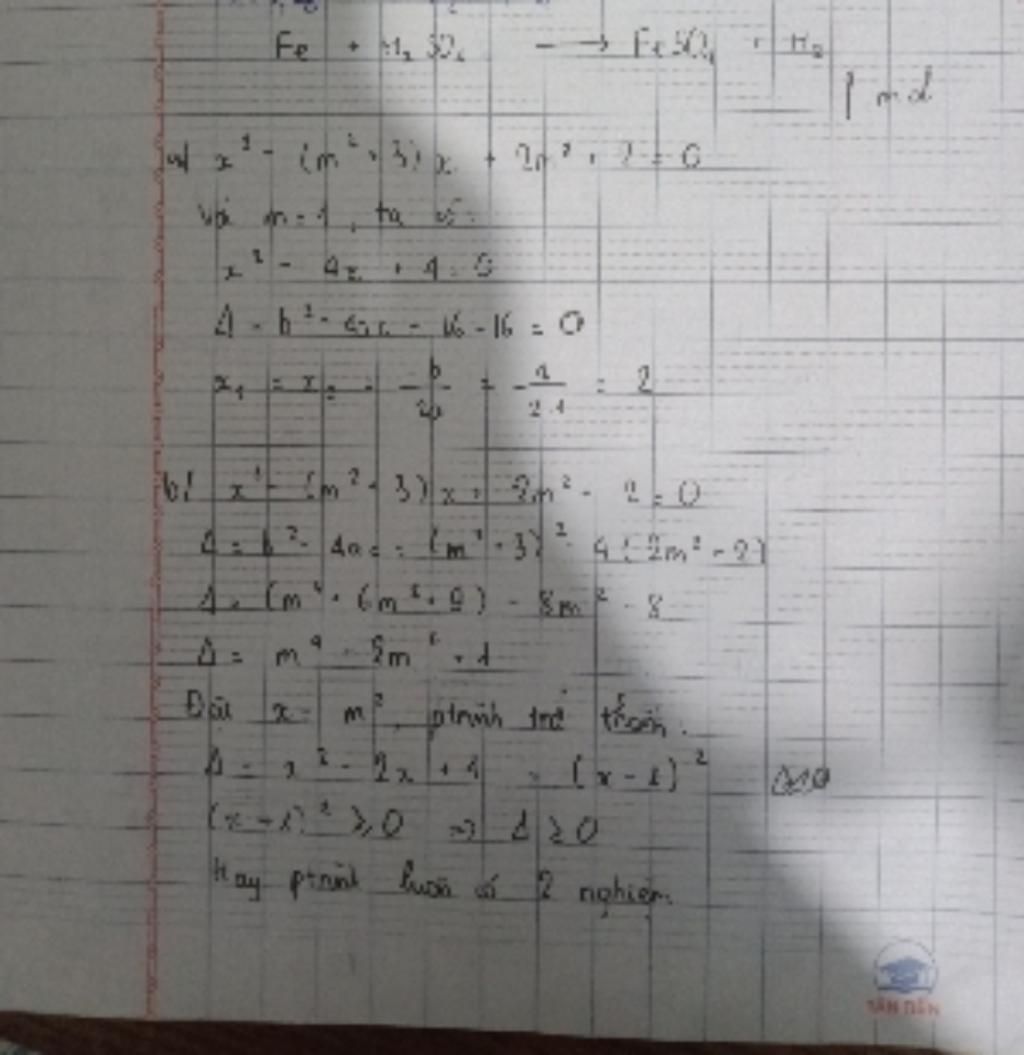 Fe + H₂SO₄ → FeSO₄ + H₂
1 mol
a) x² - (m² + 3)x + 2m² + 2 = 0
Với m = 1, ta có:
x² - 4x + 4 = 0
Δ = b² - 4ac = 16 - 16 = 0
x₁ = x₂ = -b/2a = 4/2.1 = 2
b) x² - (m² + 3)x + 2m² + 2 = 0
Δ = b² - 4ac = (m² + 3)² - 4(2m² + 2)
Δ = (m⁴ + 6m² + 9) - 8m² - 8
Δ = m⁴ - 2m² + 1
Đặt x = m², ptrình trở thành:
Δ = x² - 2x + 1 = (x - 1)²
(x - 1)² ≥ 0 => Δ ≥ 0
Hay ptrình luôn có 2 nghiệm.
TÂN TIẾN